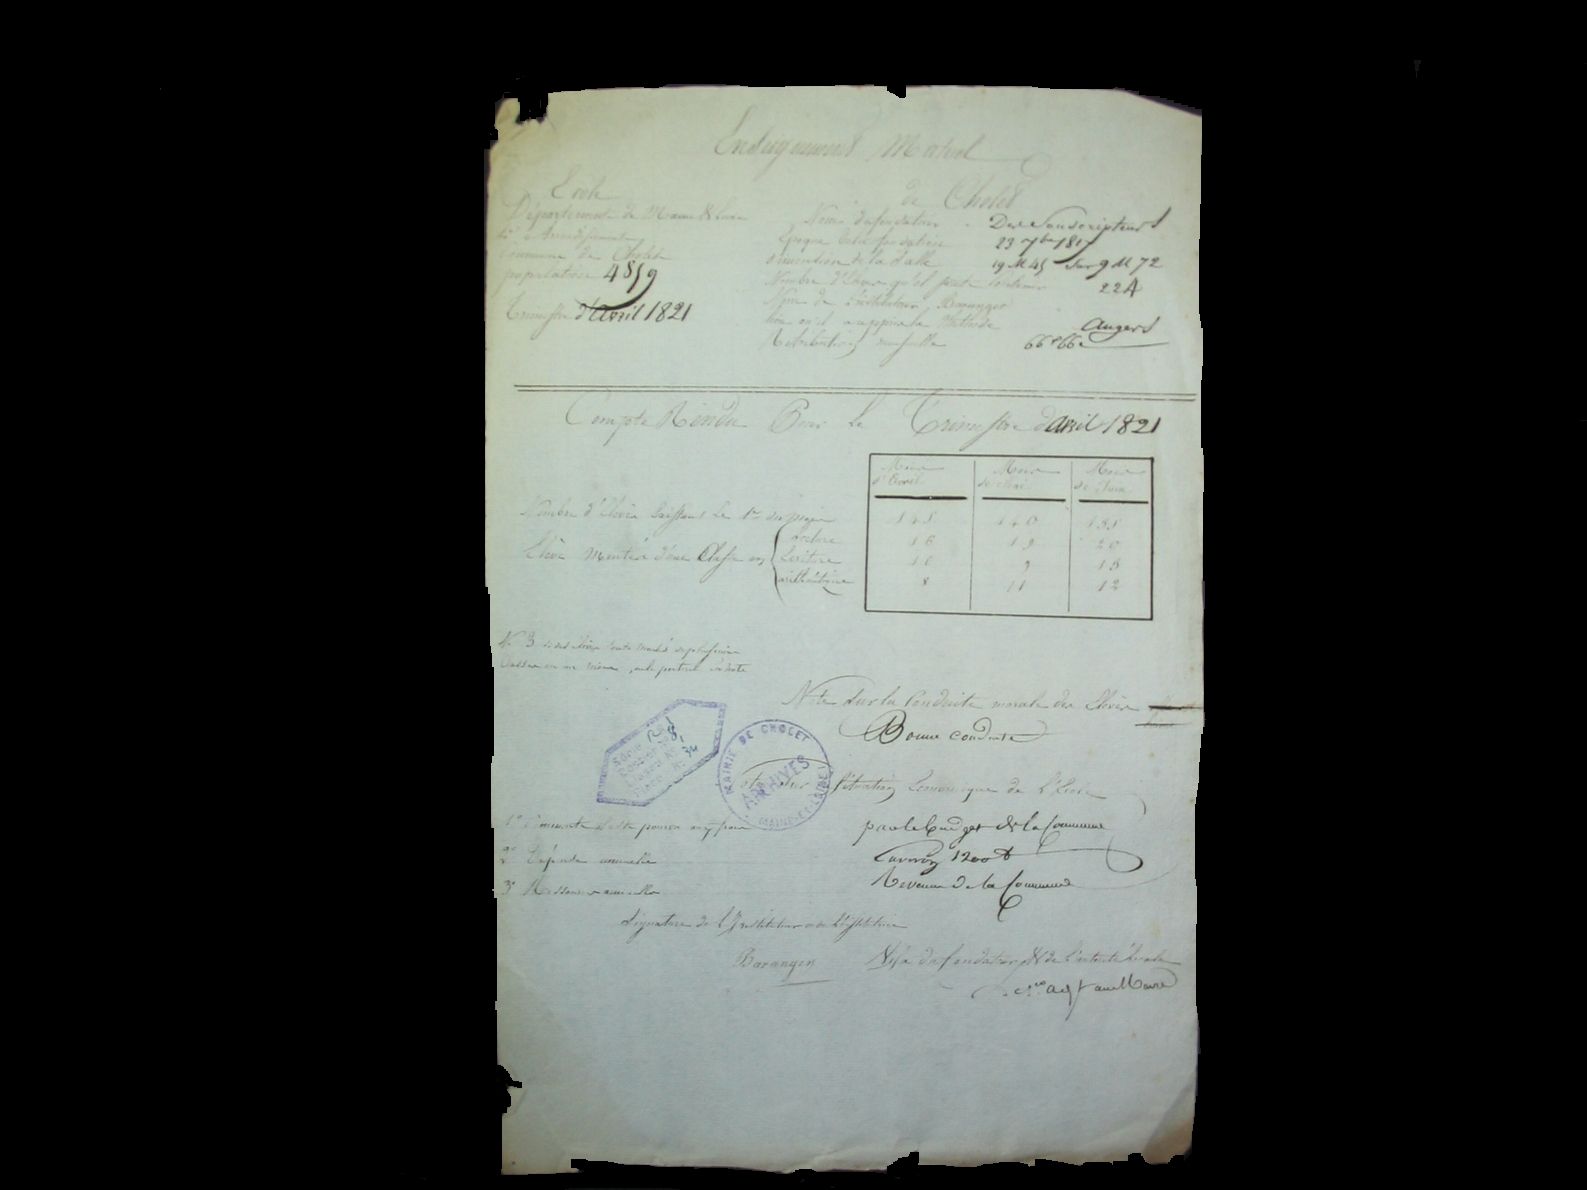 Enseignement Mutuel
Ecole de Cholet
Département de Maine & Loire
Nom du fondateur Des Souscripteurs
Arrondissement
Epoque de la fondation 23 7bre 1817
Commune de Cholet
dimention de la Salle 19 M 45 Sur 9 M 72
population 4859
Nombre d'Elever qu'il peut Contenir 224
Trimestre d'Avril 1821
Nom de l'instituteur Baranger
lieu où il a appris la Methode Angers
Retribution mensuelle 66 f 66 c
Compte Rendu Pour Le Trimestre d'Avril 1821
Mois d'Avril Mois de Mai Mois de Juin
Nombre d'Elever Existant Le 1er du mois 145 140 155
Lecture 16 19 20
Elève Montés d'une Classe en Ecriture 10 9 15
arithmétique 8 11 12
N. B.
Classes en un mois
Note Sur la Conduite morale des Elèves
Bonne conduite
Série R
Dossier N° 8
Liasse N° 1
Pièce N° 34
MAIRIE DE CHOLET
ARCHIVES
MAINE-ET-LOIRE
Situation Economique de L'Ecole
1°
par le Budget de la Commune
2° Dépense annuelle Environ 1200 f
3° Ressource annuelle Revenu de la Commune
Signature de l'Instituteur ou de L'institutrice
Baranger
Visa du fondateur & de l'autorité Locale